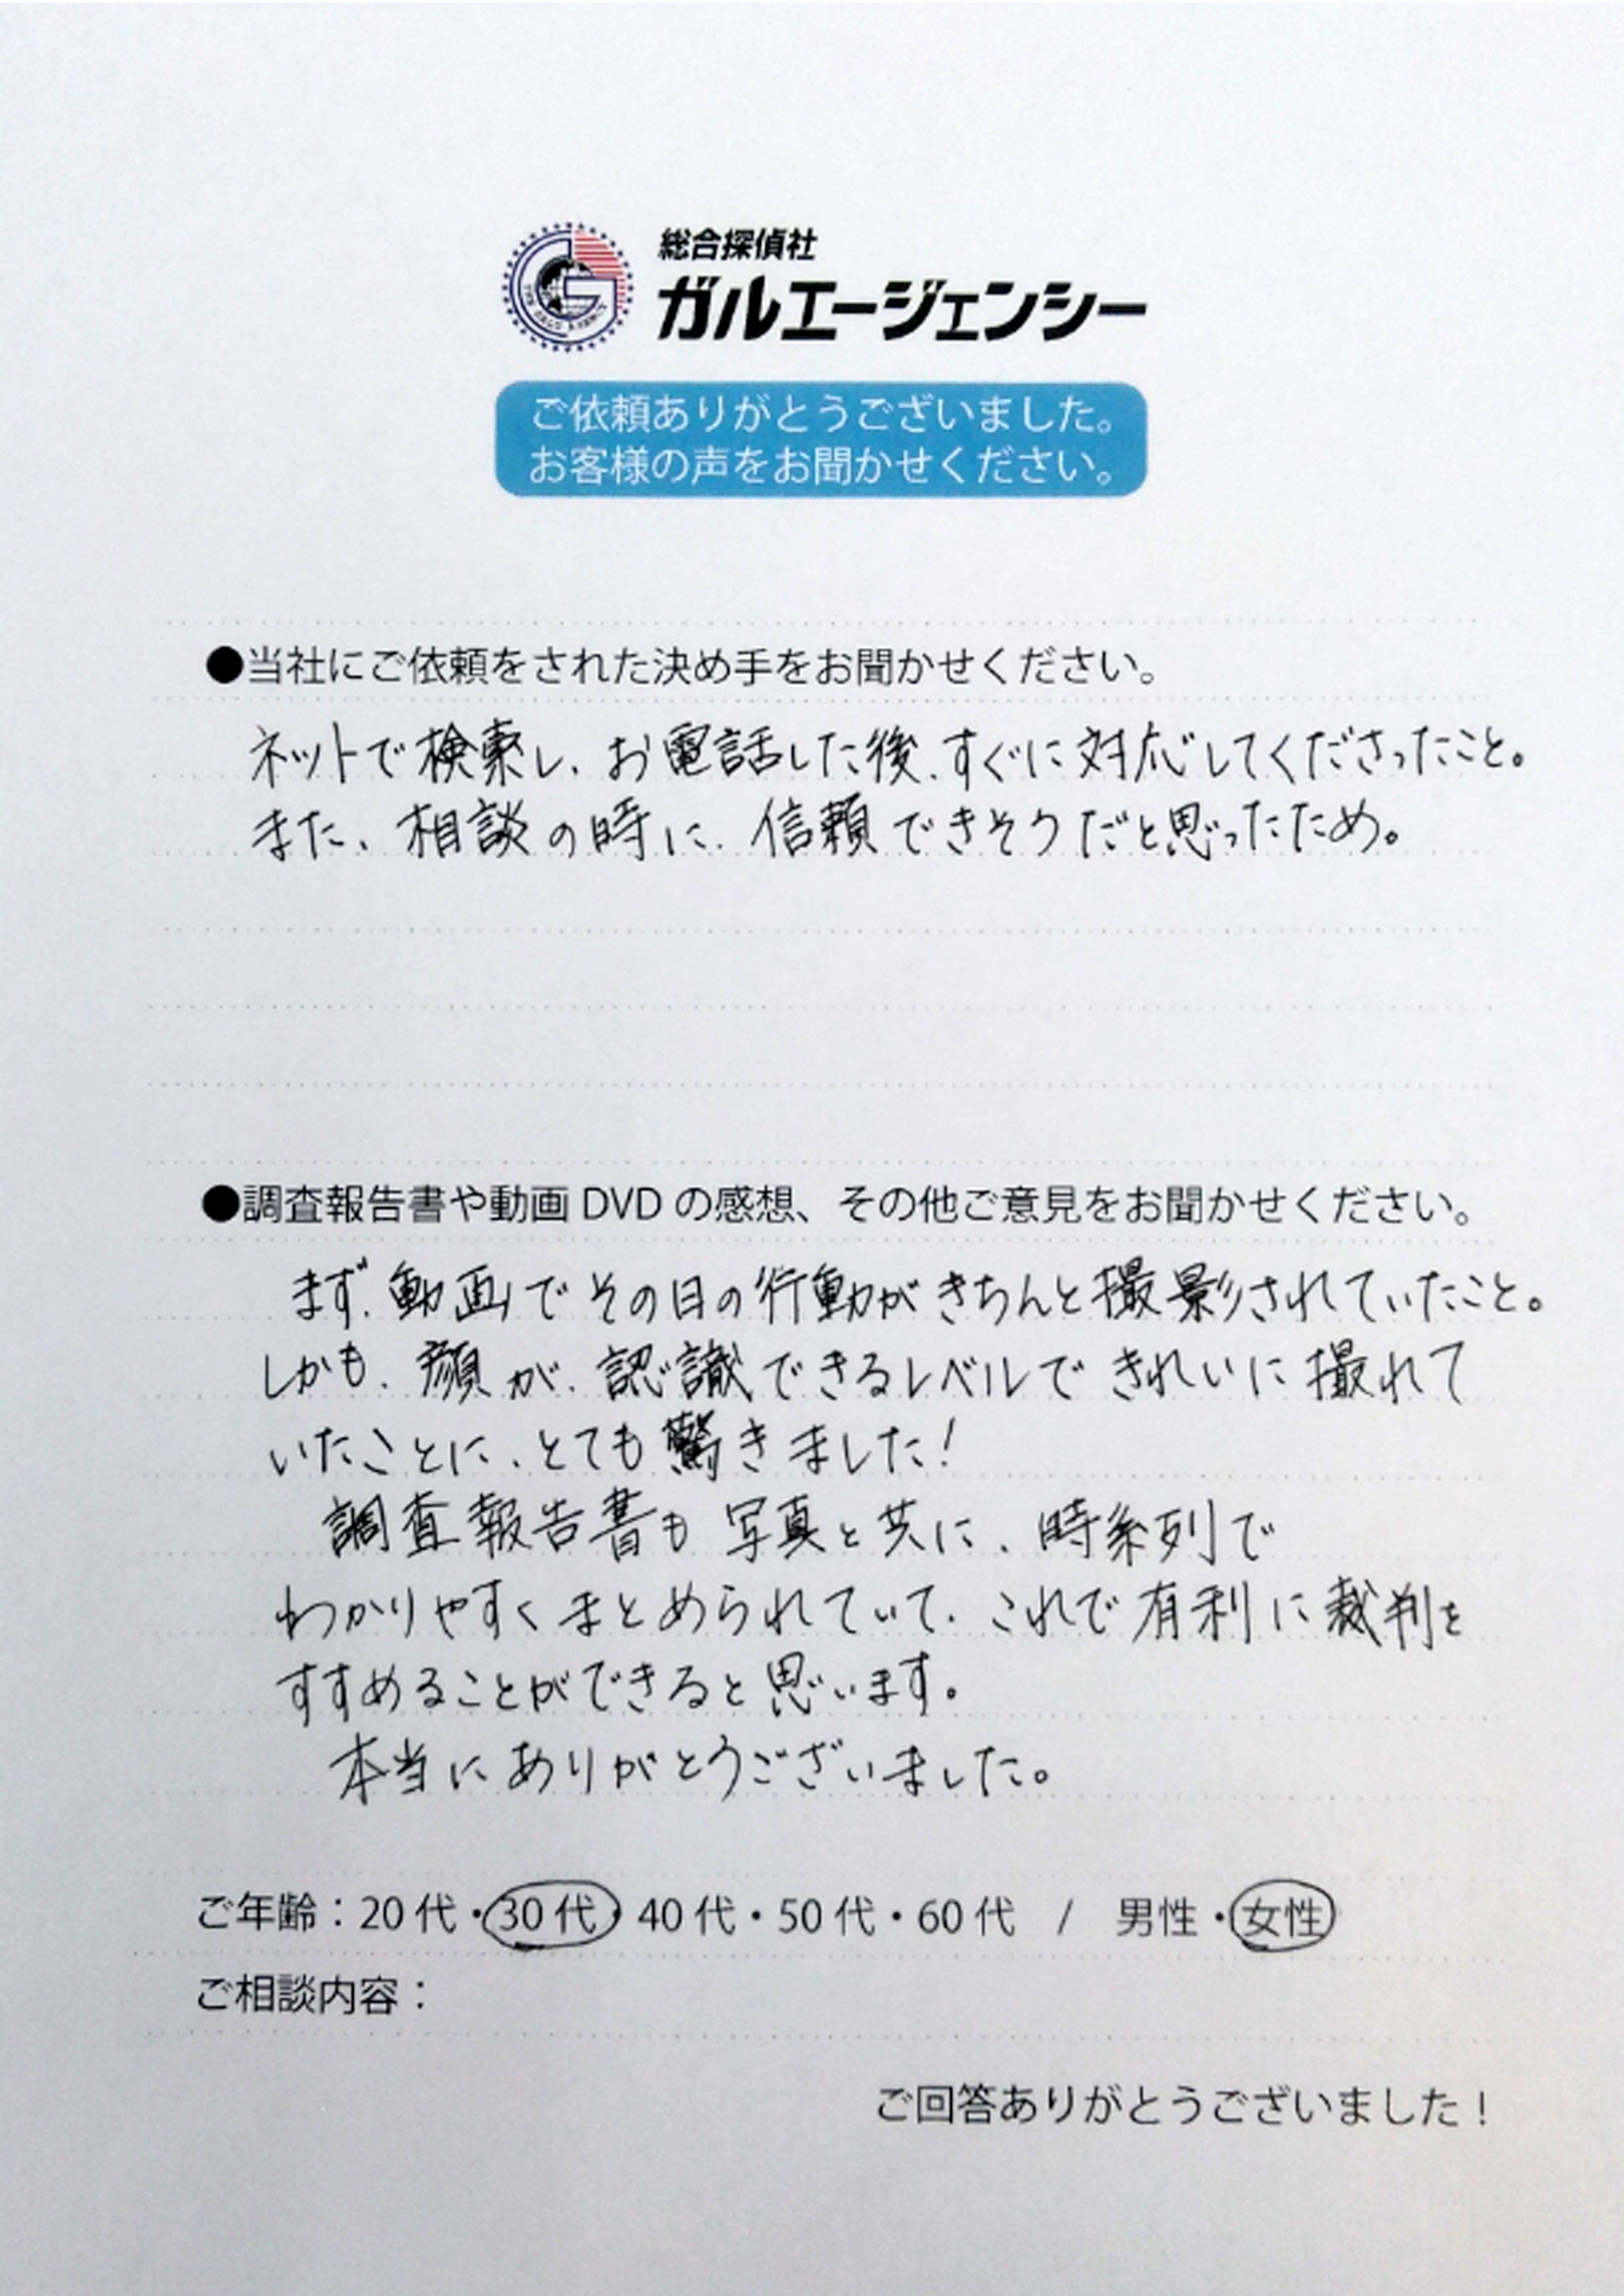 総合探偵社
ガルエージェンシー
ご依頼ありがとうございました。
お客様の声をお聞かせください。
●当社にご依頼をされた決め手をお聞かせください。
ネットで検索し、お電話した後、すぐに対応してくださったこと。
また、相談の時に、信頼できそうだと思ったため。
●調査報告書や動画 DVD の感想、その他ご意見をお聞かせください。
まず、動画でその日の行動がきちんと撮影されていたこと。
しかも、顔が、認識できるレベルできれいに撮れて
いたことに、とても驚きました!
調査報告書も写真と共に、時系列で
わかりやすくまとめられていて、これで有利に裁判を
すすめることができると思います。
本当にありがとうございました。
ご年齢：20 代・30 代・40 代・50 代・60 代 / 男性・女性
ご相談内容：
ご回答ありがとうございました！